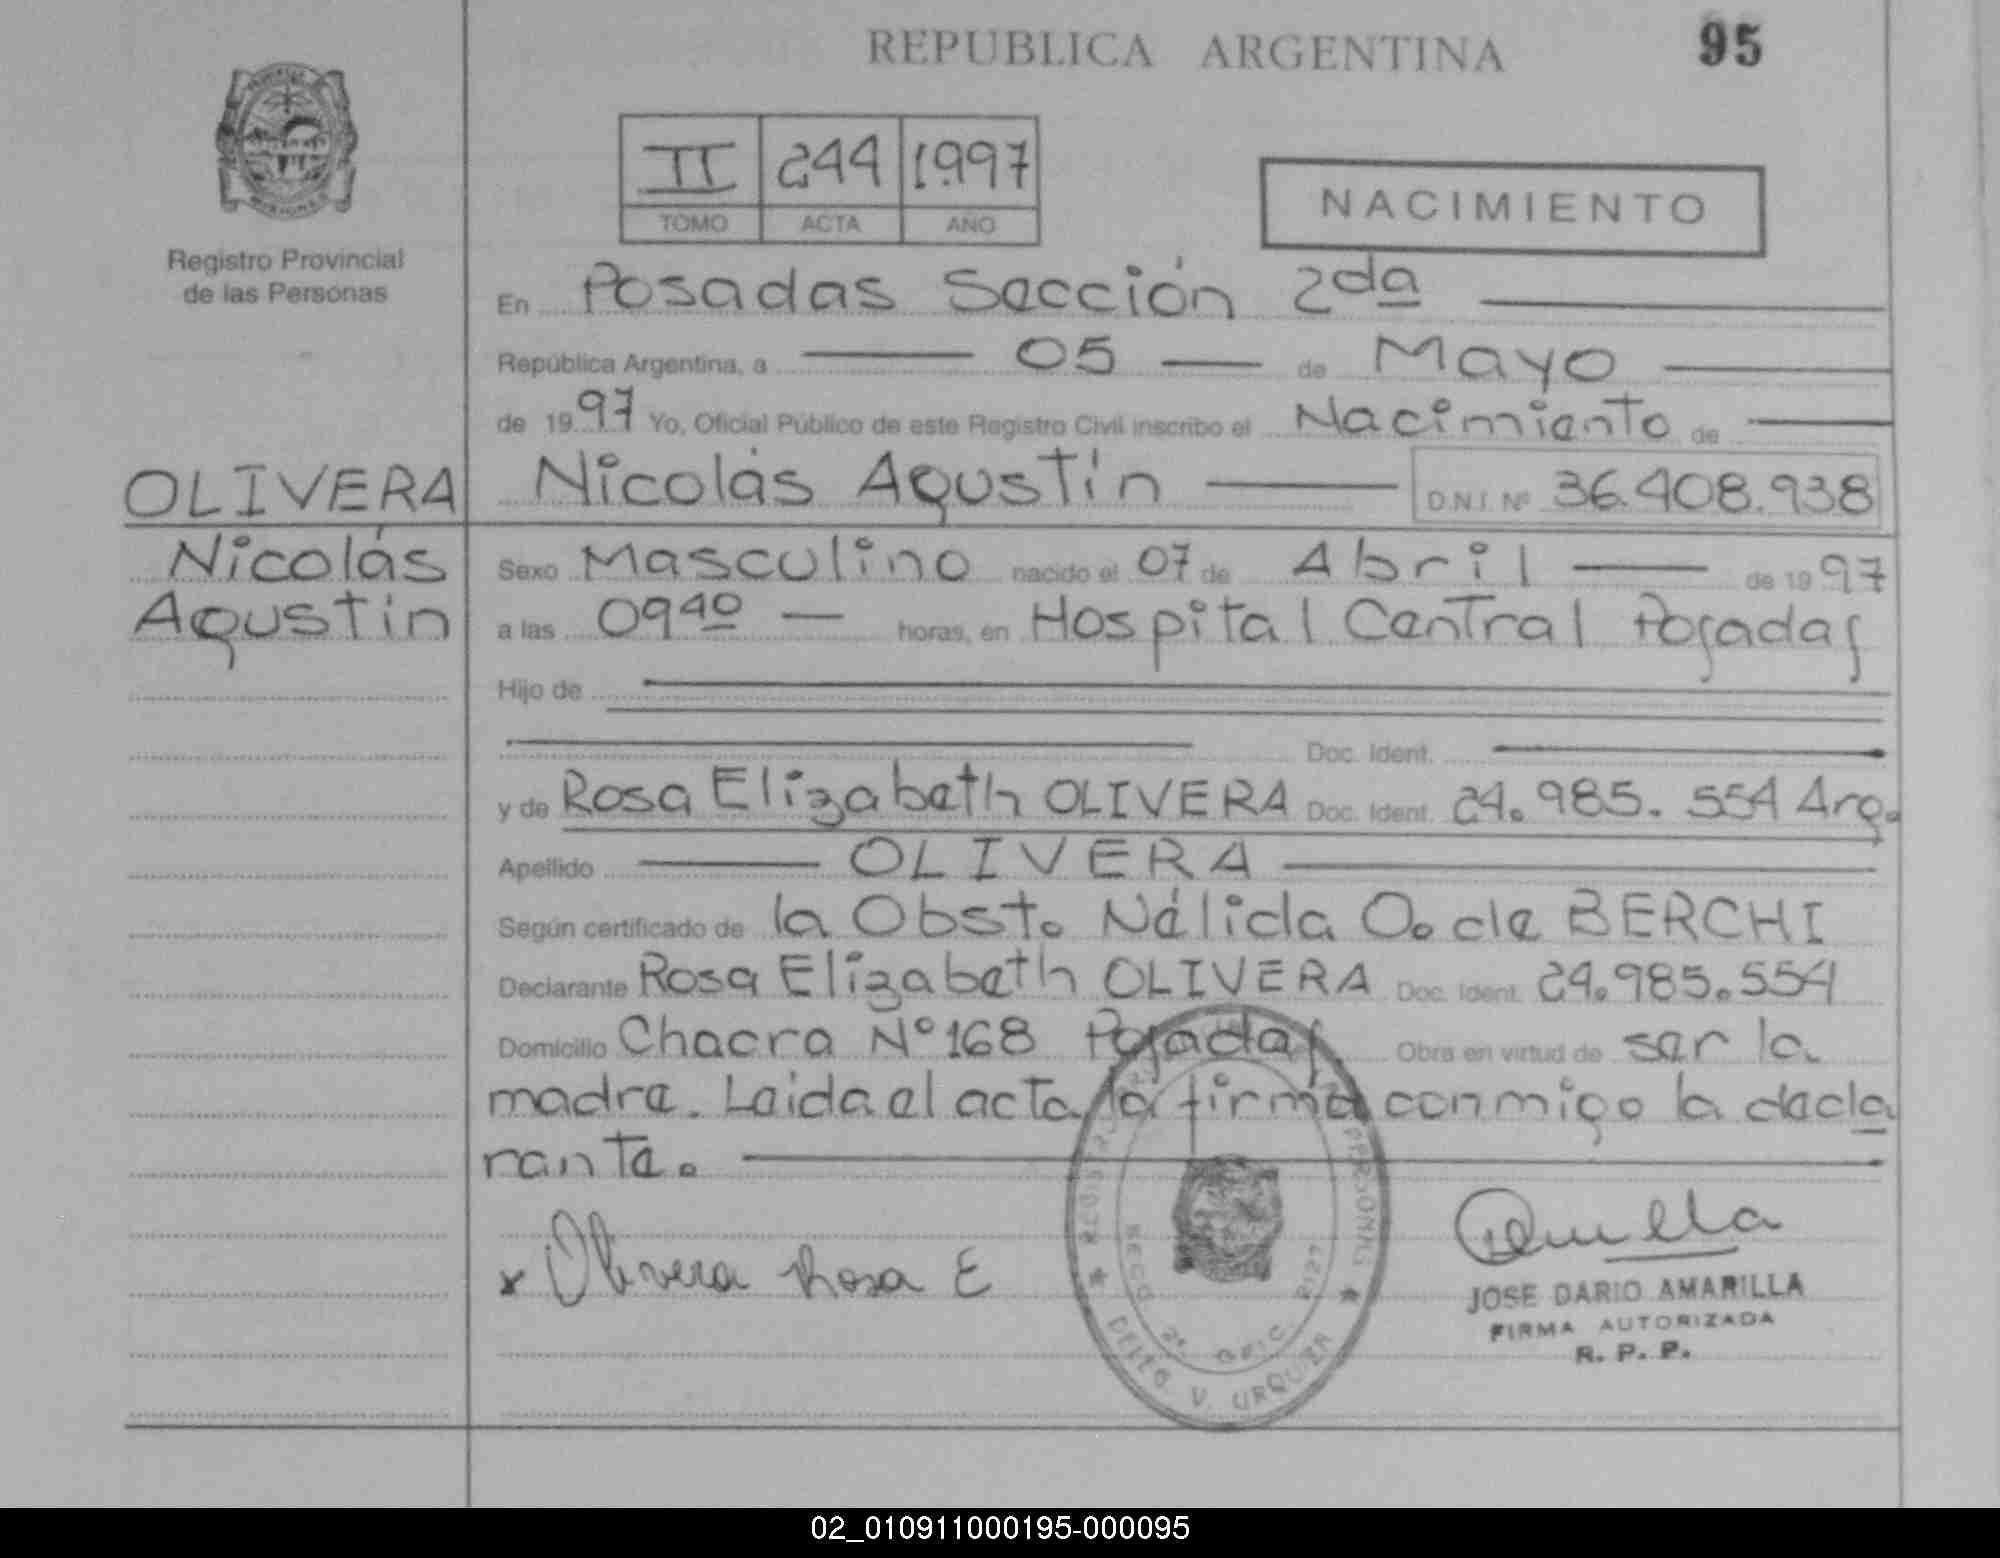 REPUBLICA ARGENTINA
95
II 244 1997
TOMO ACTA AÑO
NACIMIENTO
Registro Provincial
de las Personas
En Posadas Sección 2da
República Argentina, a 05 de Mayo
de 1997 Yo, Oficial Público de este Registro Civil inscribo el Nacimiento de
OLIVERA
Nicolás Agustín D.N.I. Nº 36.408.938
Nicolás
Agustín
Sexo Masculino nacido el 07 de Abril de 1997
a las 09 40 horas, en Hospital Central Posadas
Hijo de
Doc. Ident.
y de Rosa Elizabeth OLIVERA Doc. Ident. 24.985.554 Arg.
Apellido OLIVERA
Según certificado de la Obst. Nélida O. de BERCHI
Declarante Rosa Elizabeth OLIVERA Doc. Ident. 24.985.554
Domicilio Chacra Nº 168 Posadas Obra en virtud de ser la
madre. Leida el acta la firma conmigo la decla
rante.
x Olivera Rosa E
JOSE DARIO AMARILLA
FIRMA AUTORIZADA
R. P. P.
DELEG. V. URQUIZA
02_010911000195-000095